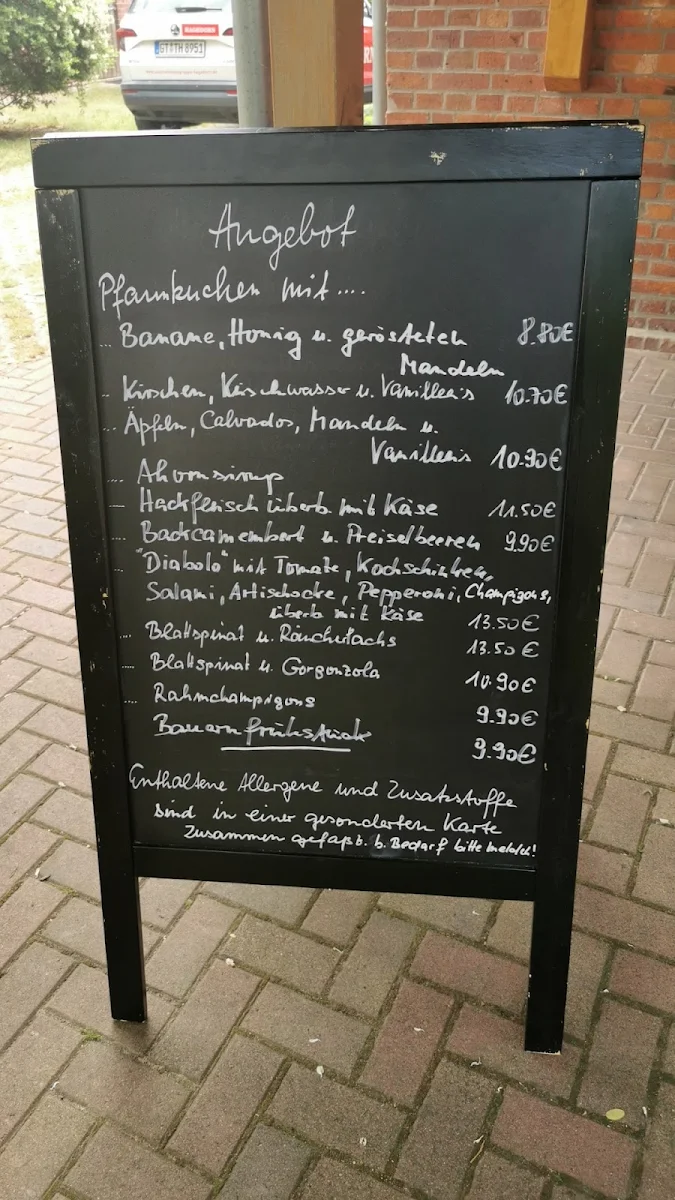 GT·TH 8951
Angebot
Pfannkuchen mit....
... Banane, Honig u. gerösteten 8.80€
Mandeln
... Kirschen, Kirschwasser u. Vanilleeis 10.70€
... Äpfeln, Calvados, Mandeln u.
Vanilleeis 10.90€
.... Ahornsirup
.... Hackfleisch überb. mit Käse 11.50€
... Backcamembert u. Preiselbeeren 9.90€
... "Diabolo" mit Tomate, Kochschinken,
Salami, Artischocke, Pepperoni, Champigons,
überb mit Käse 13.50€
.... Blattspinat u. Räucherlachs 13.50€
.... Blattspinat u. Gorgonzola 10.90€
.... Rahmchampigons 9.90€
Bauernfrühstück 9.90€
Enthaltene Allergene und Zusatzstoffe
sind in einer gesonderten Karte
Zusammen gefaßt. b. Bedarf bitte melden!